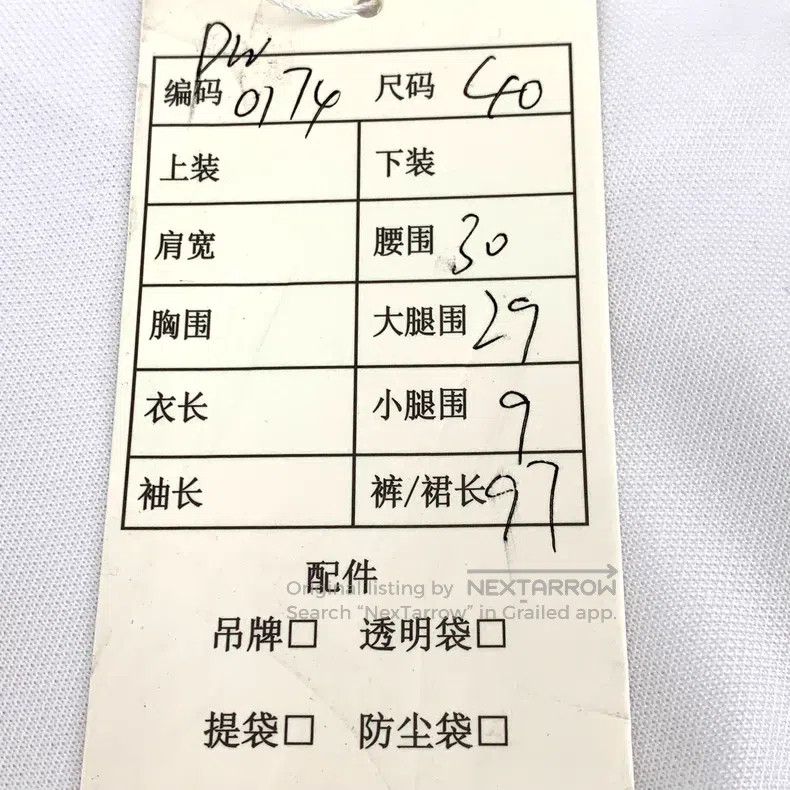 DW
编码 0174 尺码 40
上装 下装
肩宽 腰围 30
胸围 大腿围 29
衣长 小腿围 9
袖长 裤/裙长 97
配件
Original listing by NEXTARROW
Search “NexTarrow” in Grailed app.
吊牌□ 透明袋□
提袋□ 防尘袋□